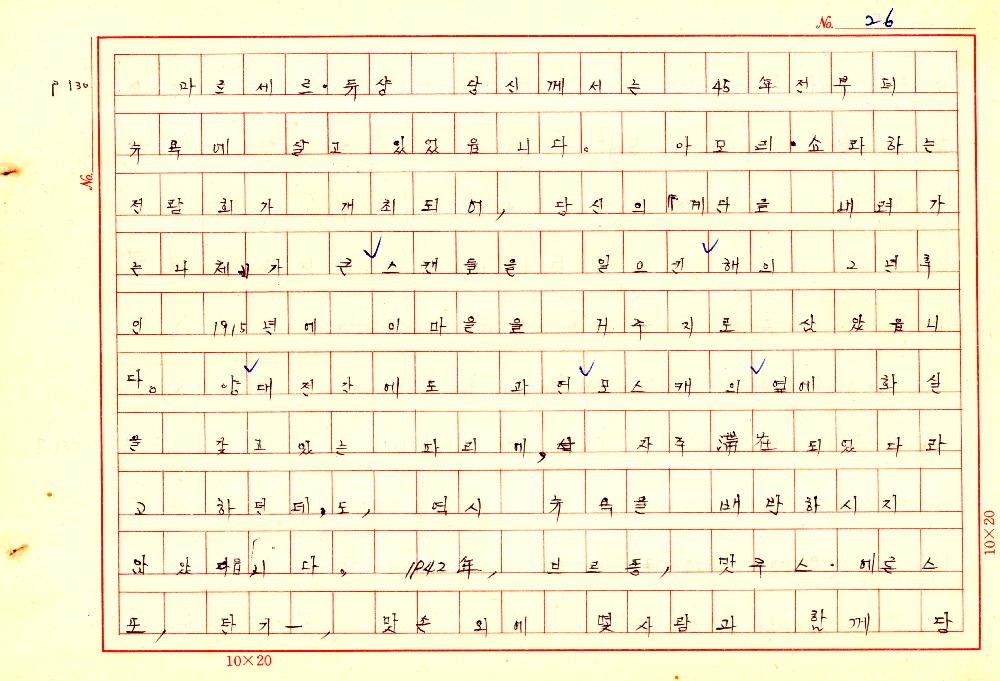 No. 26
P 130
마르세르·듀샹 당신께서는 45年전부터
뉴욕에 살고 있었읍니다。 아모리·쇼라하는
전람회가 개최되어, 당신의 「계단을 내려가
는 나체」가 큰 스캔들을 일으킨 해의 2년후
인 1915년에 이마을을 거주지로 삼았읍니
다。 양대전간에도 과연 모스캐의 옆에 화실
을 갖고 있는 파리에, 자주 滯在되었다라
고 하던데,도, 역시 뉴욕을 배반하시지
않았읍니다。 1942年, 브르통, 맛쿠스·에른스
또, 탄기ー, 맛손 외에 몇사람과 함께 당
No.
10×20
10×20